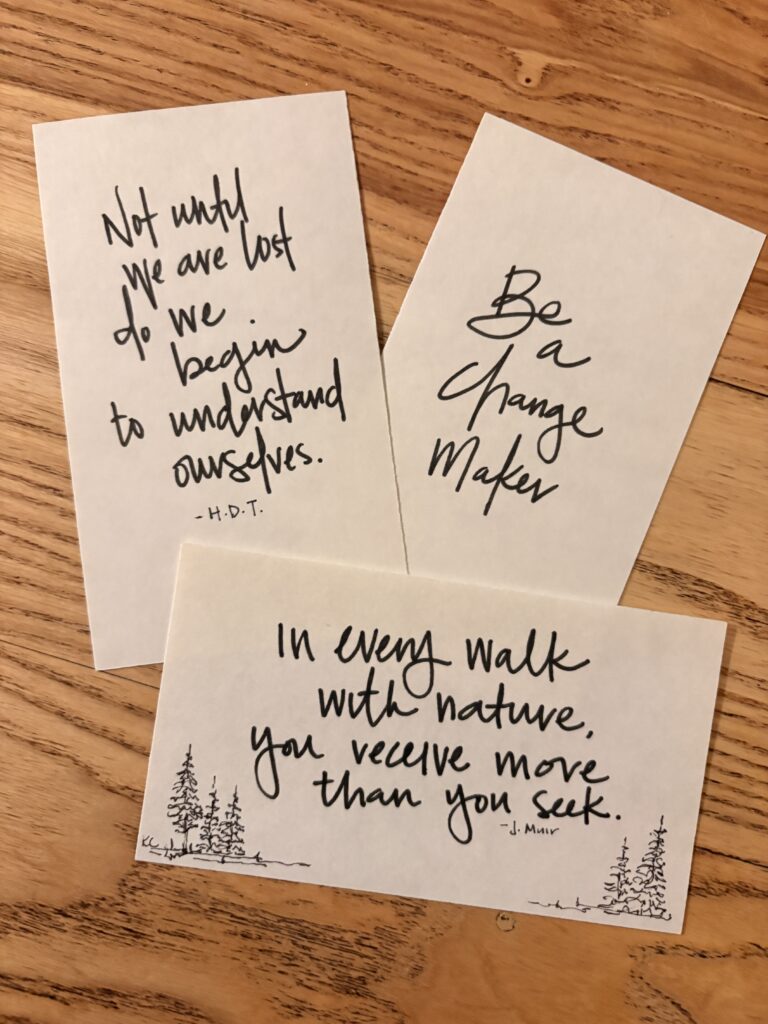 Not until
we are lost
do we
begin
to understand
ourselves.
-H.D.T.
Be
a
Change
Maker
In every walk
with nature,
you receive more
than you seek.
-J. Muir
KC